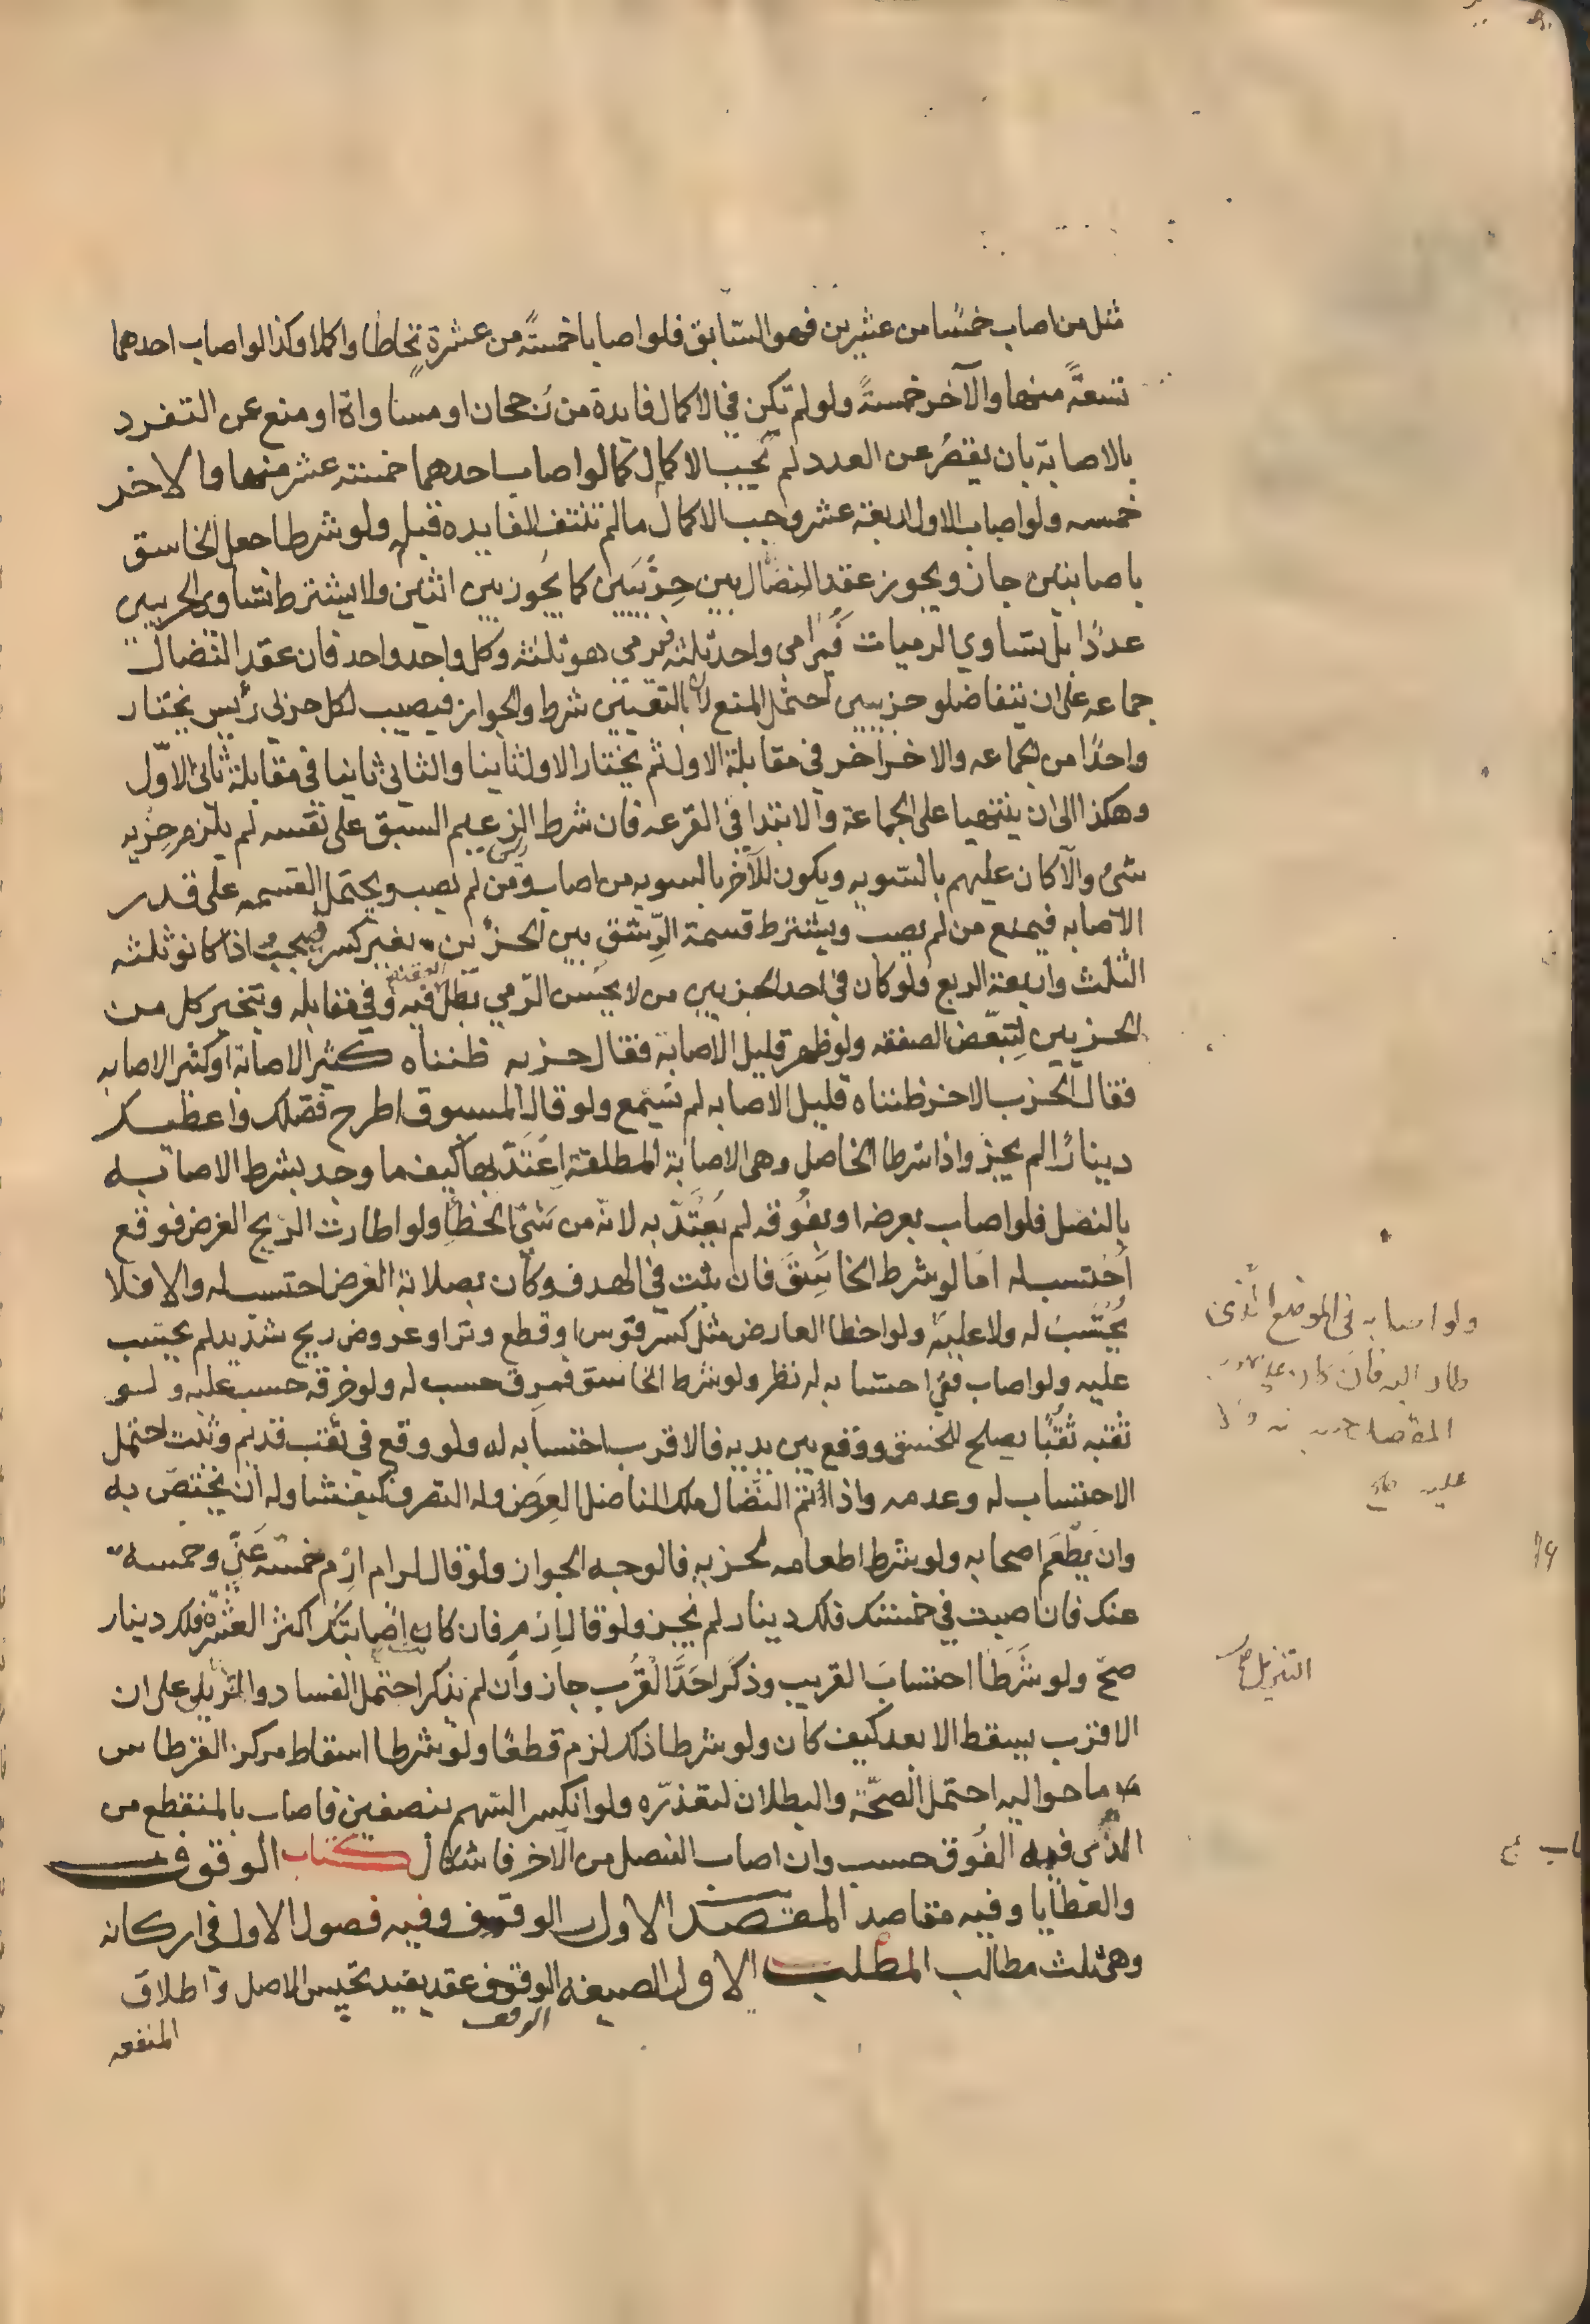 مثل من اصاب خمسًا من عشرين فهو السّابق فلو اصابا خمسةً من عشرةٍ تحاطّا واكملا وكذا لو اصاب احدهما
تسعةً منها والآخر خمسةً ولو لم تكن في الاكمال فايدة من رجحان او مساواة او منع عن التفرد
بالاصابة بان يقصُر عن العدد لم يجب الاكمال كما لو اصاب احدهما خمسة عشر منها والاخر
خمسه ولو اصاب الاول اربعة عشر وجب الاكمال ما لم تنتف الفايده قبله ولو شرطا جعل الخاسق
باصابتين جاز ويجوز عقد النضال بين حِزْبَيْن كما يجوز بين اثنين ولا يشترط تساوي الحزبين
عددًا بل تساوي الرميات فيرامي واحد ثلثه فيرمي هو ثلثه وكل واحد واحد فان عقد النضال
جماعه على ان يتفاضلو حزبين احتمل المنع لان التعيين شرط والجواز فيصيب لكل حزب رئيس يختار
واحدًا من الجماعه والاخر اخر في مقابلة الاول ثم يختار الاول ثانيا والثاني ثانيا في مقابلة ثاني الاوّل
وهكذا الى ان ينتهيا على الجماعة والابتدا في القرعه فان شرط الزعيم السبق على نفسه لم يلزم حزبه
شئ والّا كان عليهم بالسّويه ويكون للآخر بالسويه من اصاب ومن لم يصب ويحتمل القسمه على قدر
الاصابه فيمنع من لم يصب ويشترط قسمة الرّشق بين الحزبين بغير كسر فيجب اذا كانو ثلثه
الثلث واربعة الربع ولو كان في احد الحزبين من لا يحسن الرّمي بطل العقد فيه وفي مقابله ويتخير كل من
الحزبين لتبعّض الصفقه ولو ظهر قليل الاصابة فقال حزبه ظنناه كثير الاصابة او كثير الاصابه
فقال الحزب الاخر ظنناه قليل الاصابه لم يسمع ولو قال المسبوق اطرح فضلك واعطيك
دينارًا لم يجز واذا شرطا الخاصل وهي الاصابة المطلقة اعتدّ بها كيف ما وجد بشرط الاصابه
بالنصل فلو اصاب بعرضه او بفُوقه لم يُعتدّ به لانه من سَيّئ الخطأ ولو اطارت الريح الغرض فوقع
اُحتسب له اما لو شرط الخاسِقَ فان ثبت في الهدف وكان بصلابة الغرض احتسب له والا فلا
يُحتسب له ولا عليه ولو اخطا لعارض مثل كسر قوس او قطع وتر او عروض ريح شديد لم يحتسب
عليه ولو اصاب ففي احتسابه له نظر ولو شرط الخاسق فمرق حسب له ولو خرقه حسب عليه ولو
ثقبه ثقبًا يصلح للخسق ووقع بين يديه فالاقرب احتسابه له ولو وقع في ثقب قديم وثبت احتمل
الاحتساب له وعدمه واذا تمّ النّضال ملك الناضل العِوَض وله التصرف كيف شا وله ان يختصّ به
وان يُطعم اصحابه ولو شرط اطعامه لحزبه فالوجه الجواز ولو قال لرام ارْمِ خمسة عَنّي وخمسه
عنك فان اصبت في خمستك فلك دينار لم يجز ولو قال ارم فان كان اصابتك اكثر العشرة فلك دينار
صحّ ولو شَرَطَا احتسابَ القريب وذكرا حَدَّ القُرب جاز وان لم يذكرا احتمل الفساد والتنزيل على ان
الاقرب يسقط الابعد كيف كان ولو شرطا ذلك لزم قطعًا ولو شرطا اسقاط مركز القرطاس
ما حواليه احتمل الصحّة والبطلان لتعذّره ولو انكسر السّهم بنصفين فاصاب بالمنقطع من
الذي فيه الفُوق حسب وان اصاب النصل من الآخر فاشكال كتاب الوقوف
والعطايا وفيه مقاصد المقصد الاول الوقوف وفيه فصول الاول في اركانه
وهي ثلث مطالب المطلب الاول الصيغه الوقف عقد يفيد تحبيس الاصل واطلاق
الوقف
المنفعه
ولو اصابه في الموضع الّذي
طار اليه فان كان على
عليه صح
التنزيل صح